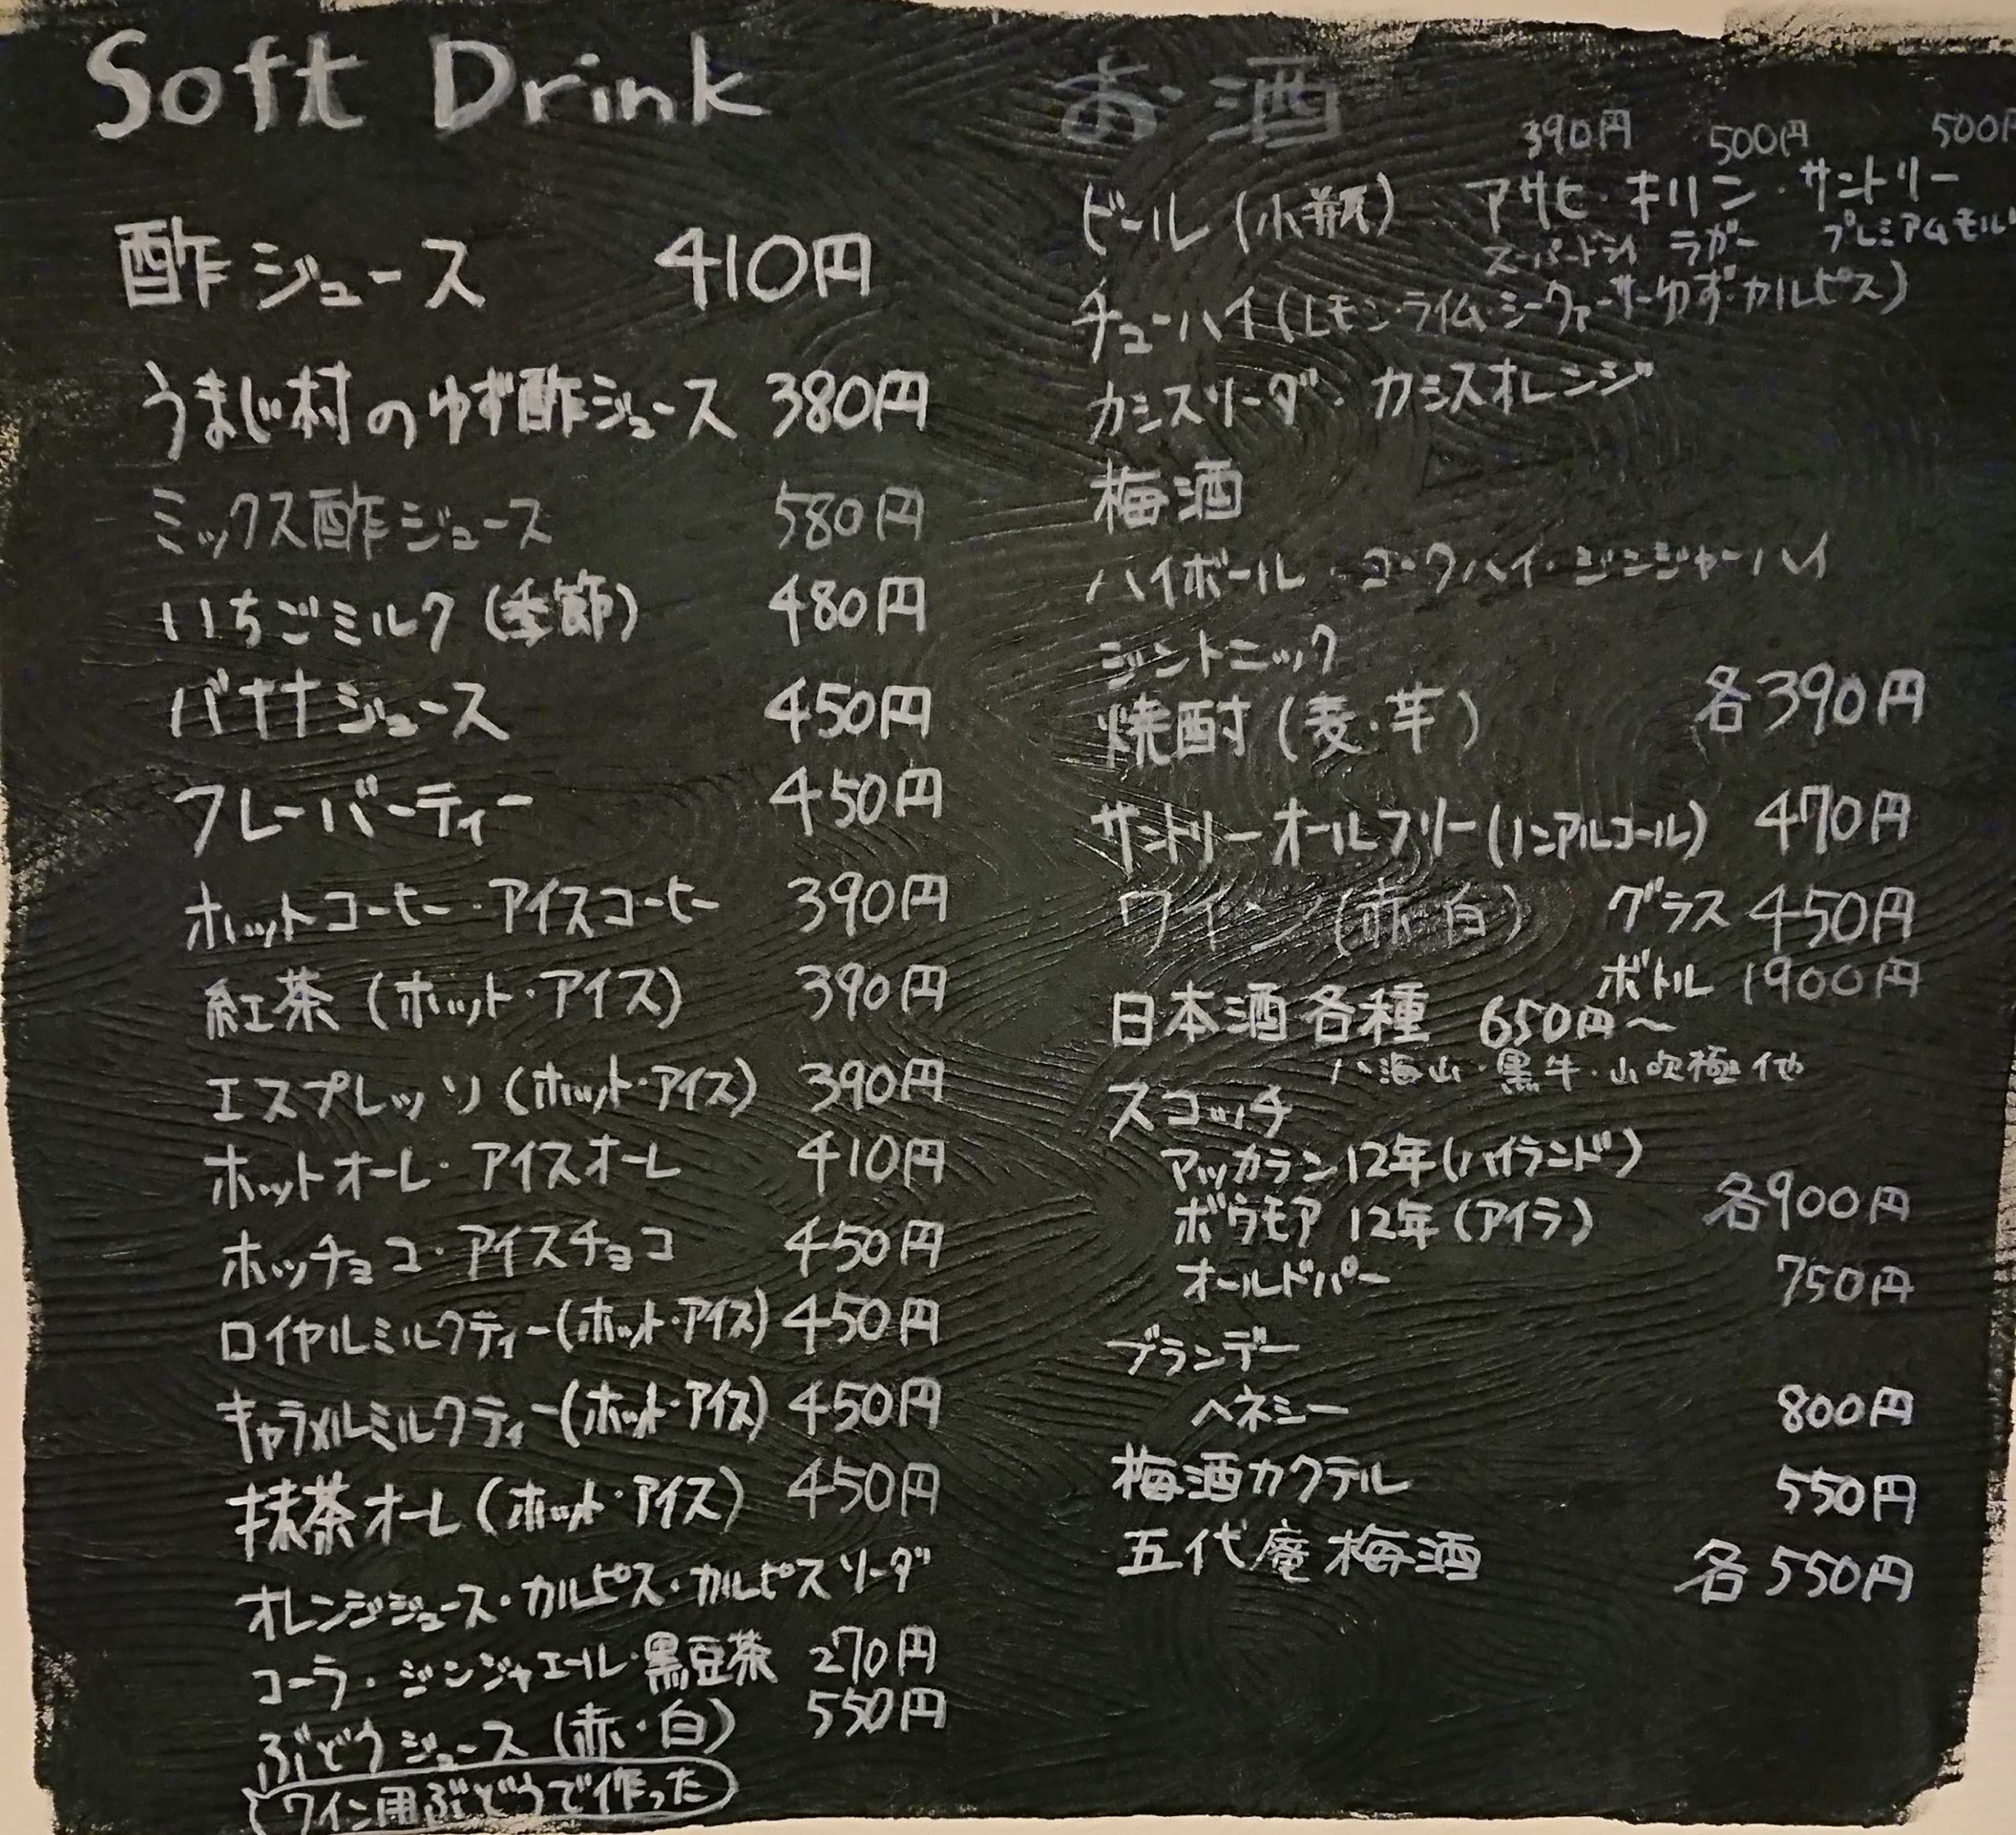 Soft Drink
酢ジュース 410円
うまじ村のゆず酢ジュース 380円
ミックス酢ジュース 580円
いちごミルク (季節) 480円
バナナジュース 450円
フレーバーティー 450円
ホットコーヒー・アイスコーヒー 390円
紅茶 (ホット・アイス) 390円
エスプレッソ (ホット・アイス) 390円
ホットオーレ・アイスオーレ 410円
ホッチョコ・アイスチョコ 450円
ロイヤルミルクティー (ホット・アイス) 450円
キャラメルミルクティー (ホット・アイス) 450円
抹茶オーレ (ホット・アイス) 450円
オレンジジュース・カルピス・カルピスソーダ
コーラ・ジンジャエール・黒豆茶 270円
ぶどうジュース (赤・白) 550円
(ワイン用ぶどうで作った)
お酒
390円 500円 500円
ビール (小瓶) アサヒ・キリン・サントリー
スーパードライ ラガー プレミアムモル
チューハイ (レモン・ライム・シークァーサーゆず・カルピス)
カシスソーダ・カシスオレンジ
梅酒
ハイボール・コークハイ・ジンジャーハイ
ジントニック
焼酎 (麦・芋) 各390円
サントリーオールフリー (ノンアルコール) 470円
ワイン (赤・白) グラス 450円
ボトル 1900円
日本酒各種 650円〜
八海山・黒牛・山吹極 他
スコッチ
マッカラン12年 (ハイランド)
ボウモア 12年 (アイラ) 各900円
オールドパー 750円
ブランデー
ヘネシー 800円
梅酒カクテル 550円
五代庵梅酒 各550円